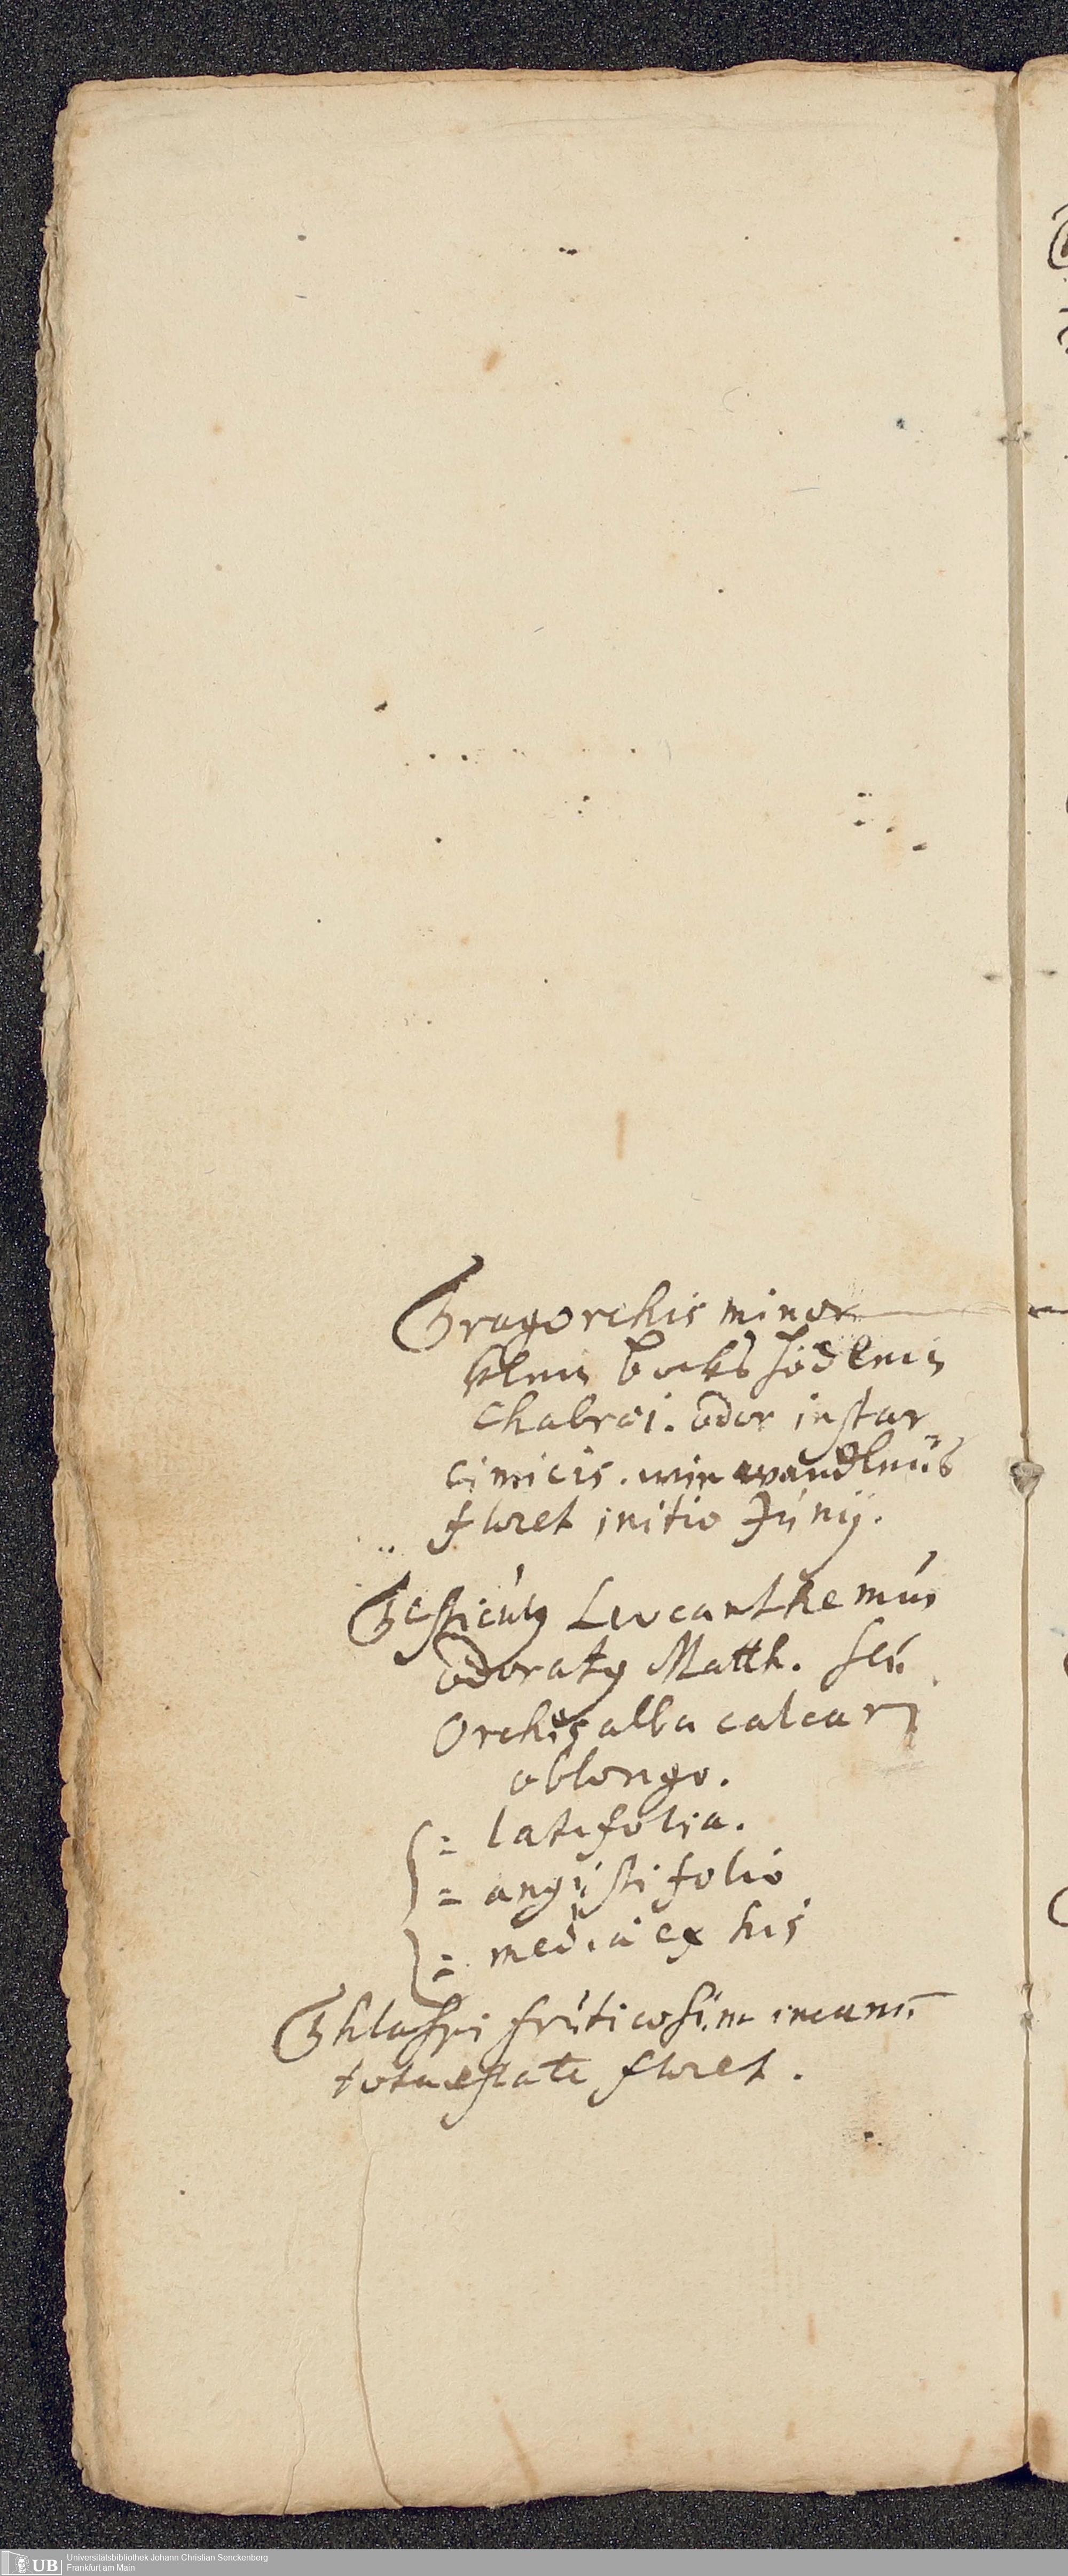 Tragorchis minor
klein bocks hödlein
Chabræi. odor instar
cimicis. wie wandleüs
floret initio Júnij.
Testiculꝯ Leucanthemús
odoratꝯ Matth. seú
Orchis alba calcari
oblongo.
= latifolia.
= angústifolio
= media ex his
Thlaspi frúticosúm incanú
tota æstate floret.
UB
Universitätsbibliothek Johann Christian Senckenberg
Frankfurt am Main